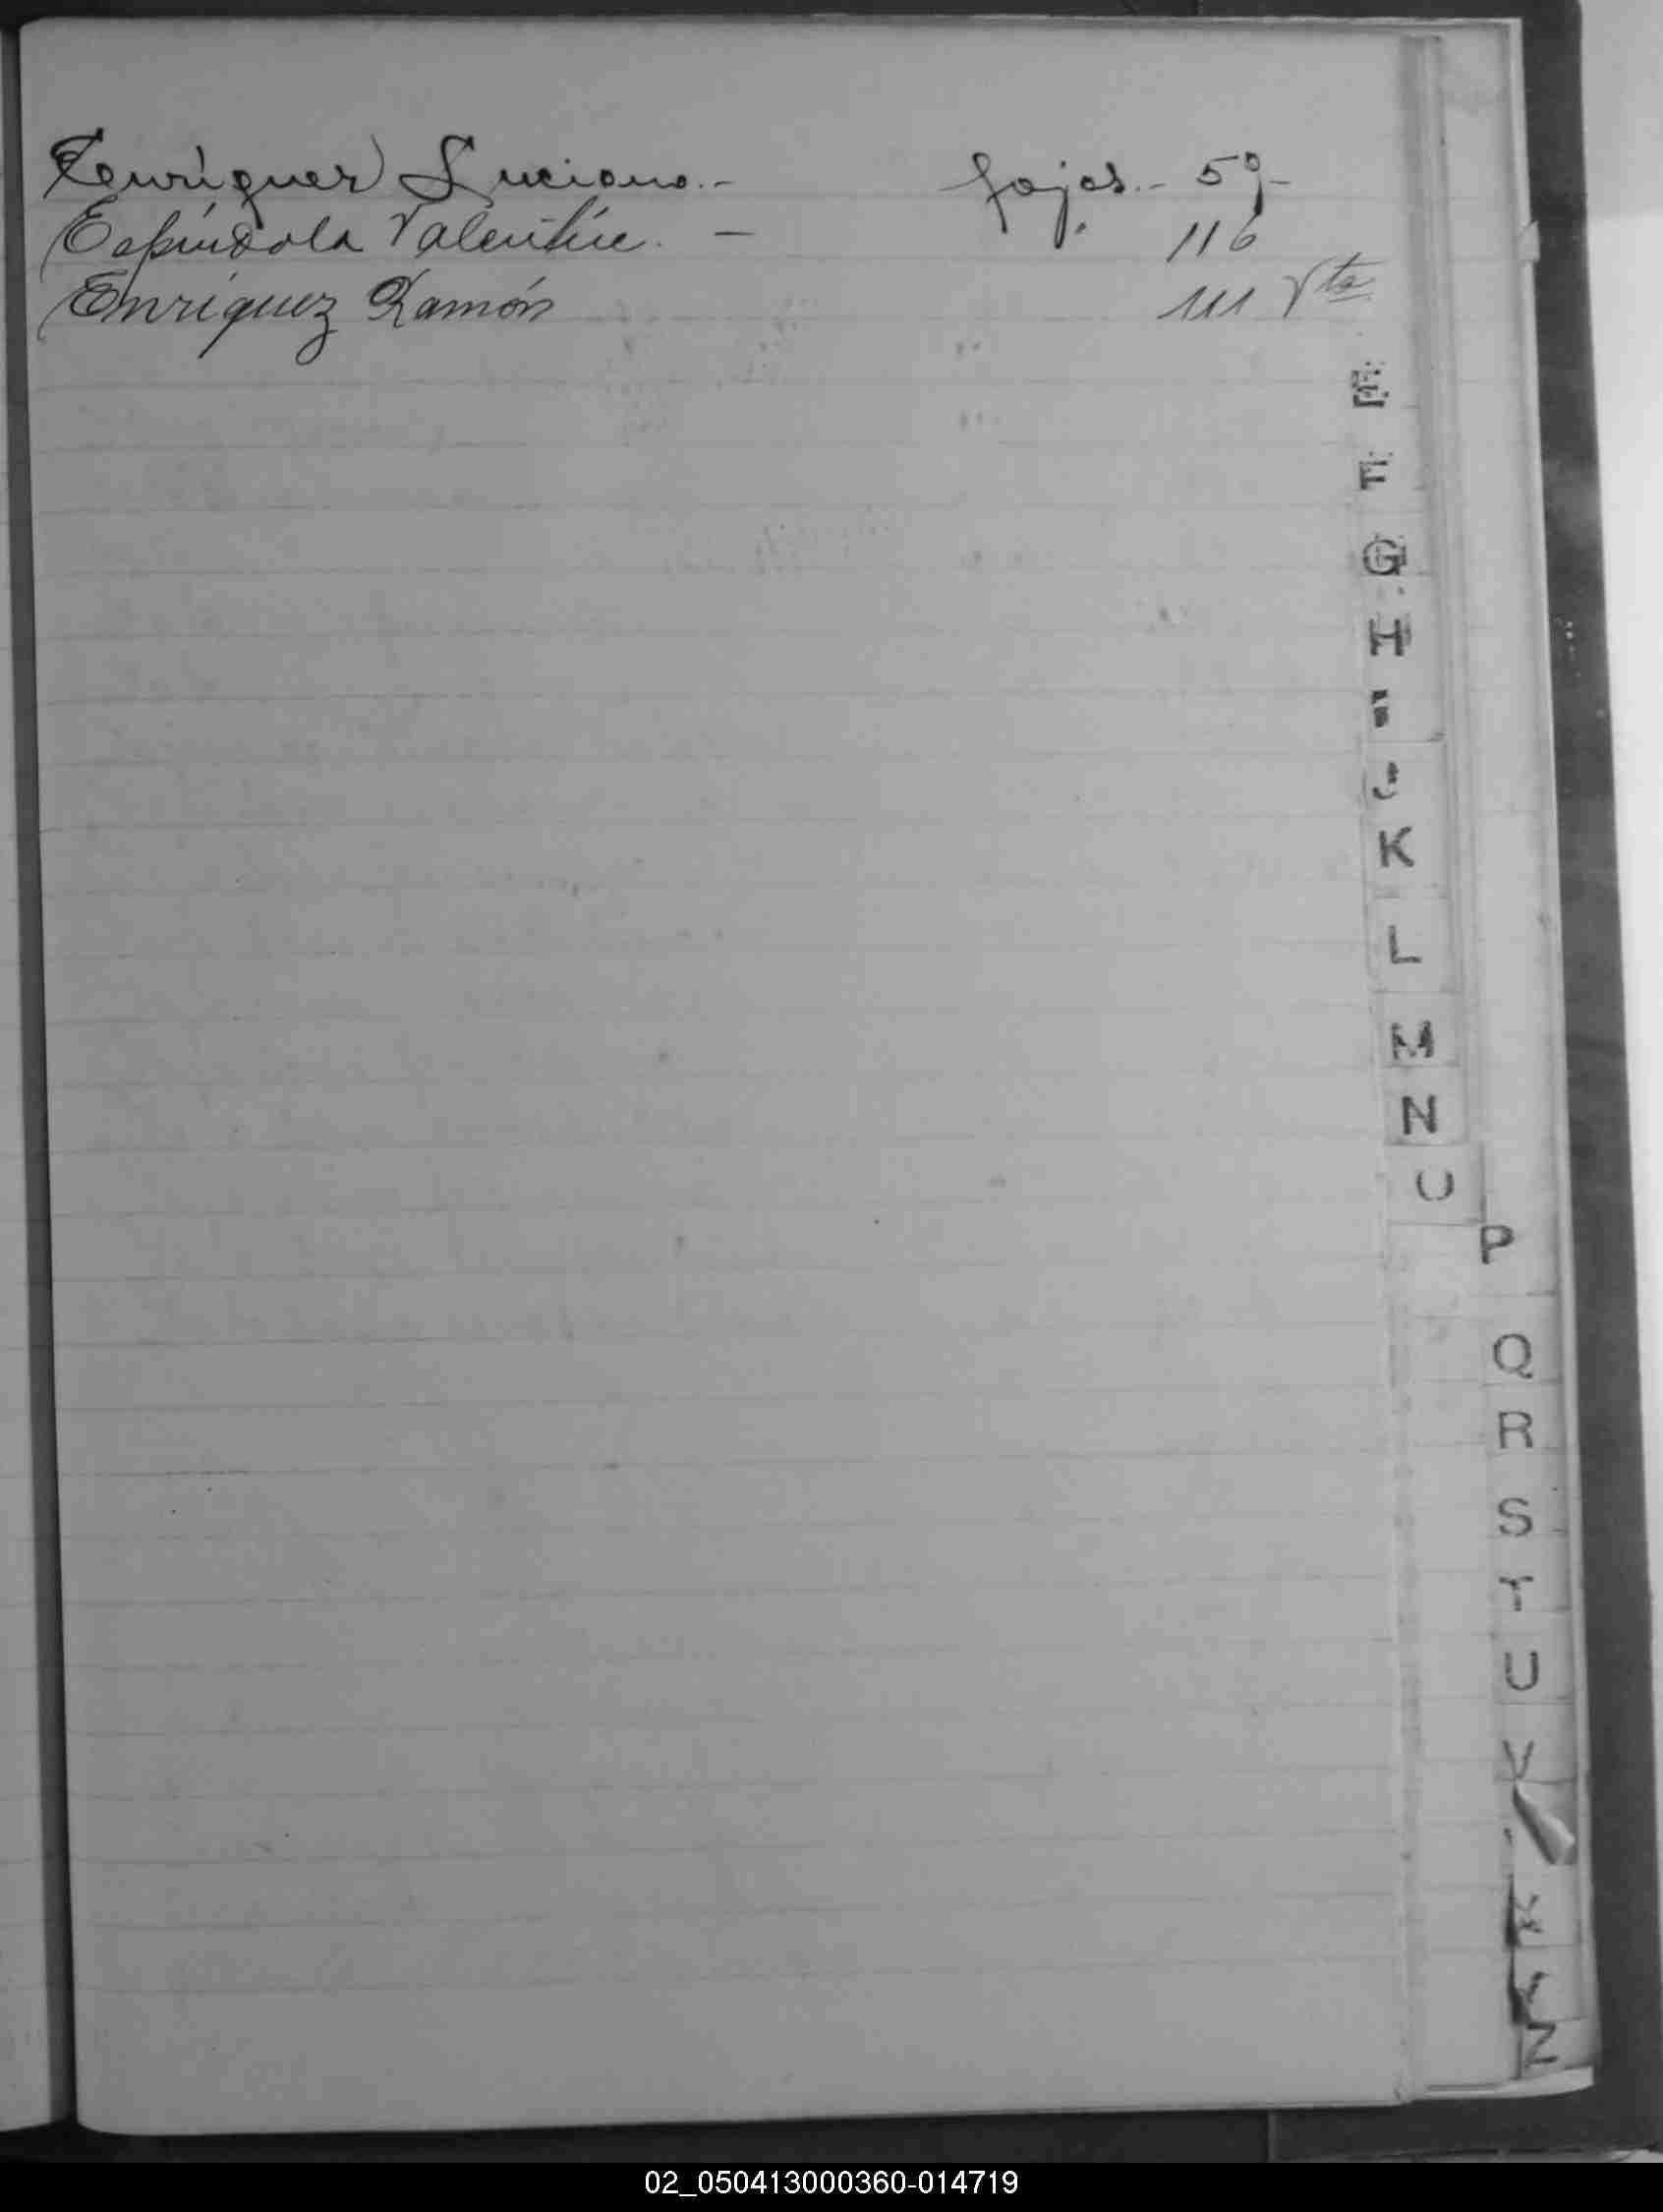 Enriquez Luciano.- fojas.- 59-
Espíndola Valentín. - 116
Enríquez Ramón 111 Vta
E
F
G
H
I
J
K
L
M
N
O
P
Q
R
S
T
U
V
Y
Z
02_050413000360-014719